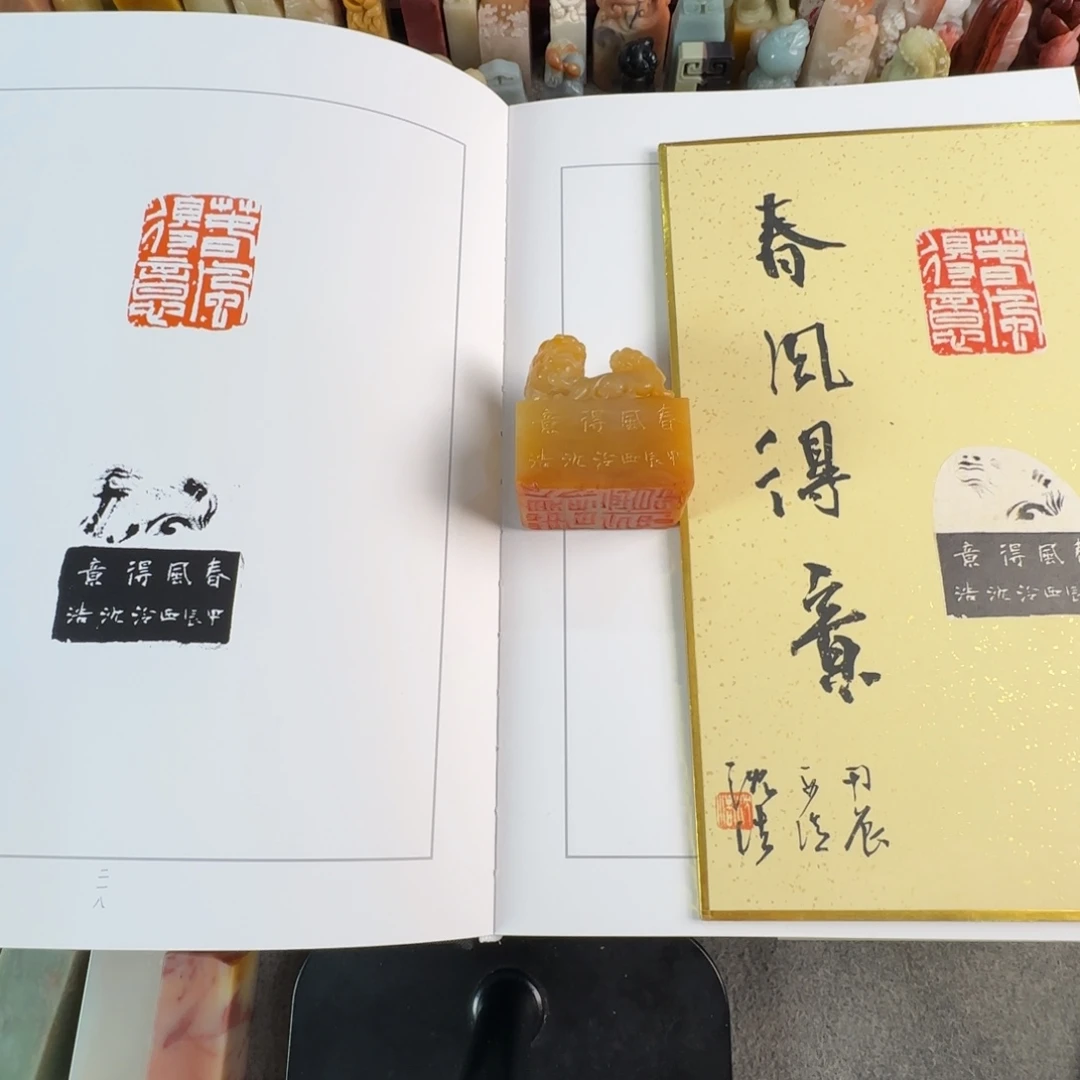 春風
得意
春風得意
甲辰西泠沈浩
二一八
春風得意
甲辰西泠沈浩
春風得意
甲辰
西泠
沈浩
春風
得意
春風得意
甲辰西泠沈浩